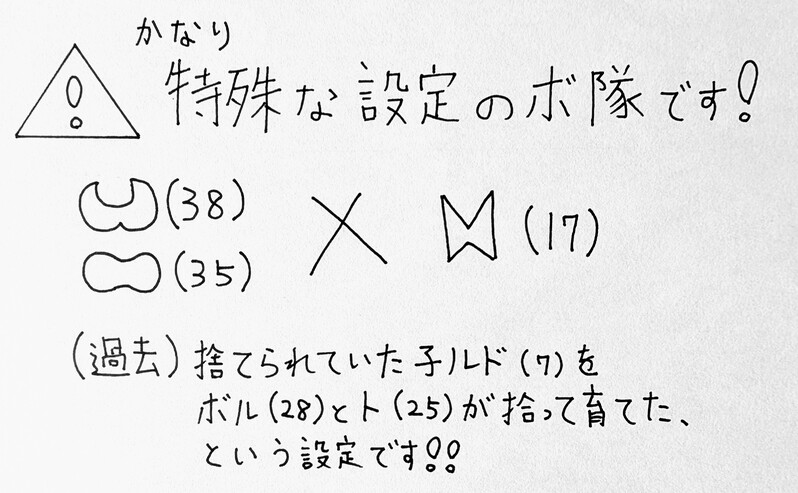 かなり
特殊な設定のボ隊です!
(38)
(35)
× (17)
(過去)捨てられていた子ルド(7)を
ボル(28)とト(25)が拾って育てた、
という設定です!!